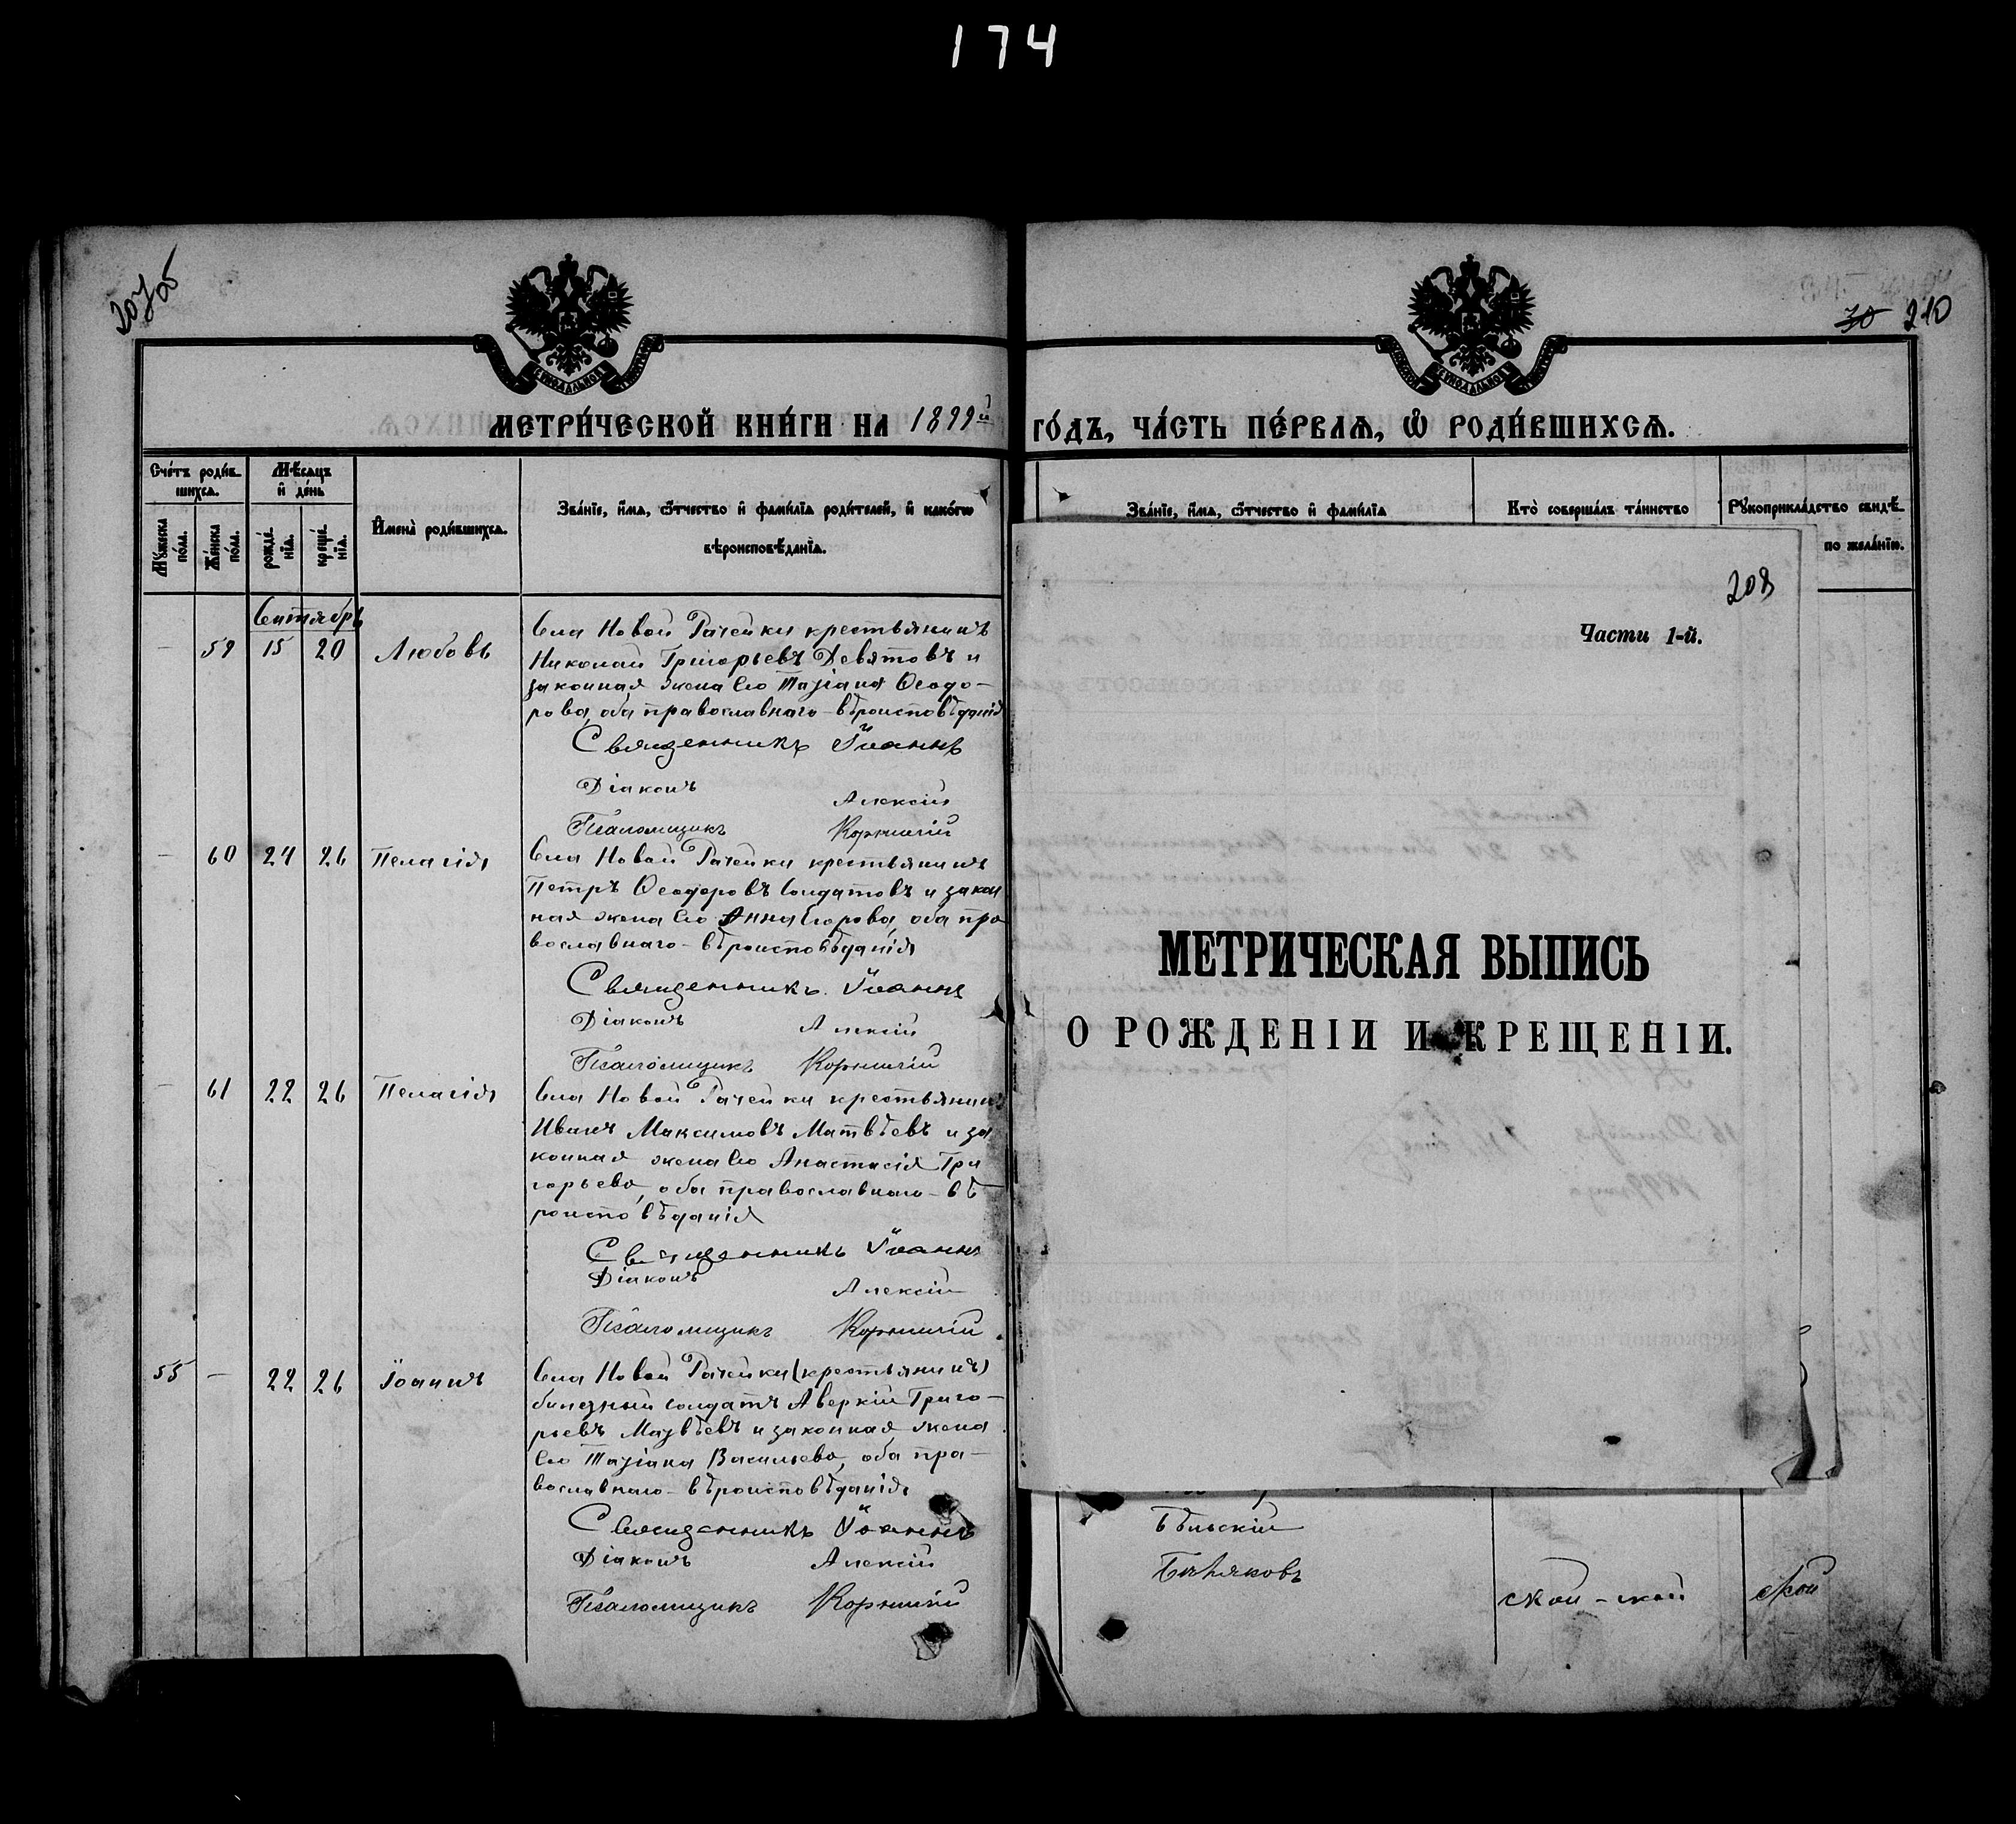 174
207об
30 210
МЕТРИ́ЧЕСКОЙ КНИ́ГИ НА 1899й
ГО́ДЪ, ЧА́СТЬ ПЕ́РВАѦ, Ѡ РОДИ́ВШИХСѦ.
Сче́тъ роди́в-
шихсѧ.
Мꙋжеска по́ла.
Же́нска по́ла.
Мѣ́сѧцъ
и де́нь
рожде́-
нїѧ.
креще́-
нїѧ.
Имена̀ роди́вшихсѧ.
Зва́нїе, и́мѧ, ѻ́тчество и фами́лїѧ роди́телей, и како́гѡ
вѣроисповѣ́данїѧ.
Зва́нїе, и́мѧ, ѻ́тчество и фами́лїѧ
Кто̀ соверша́лъ та́инство
Рꙋкоприкла́дство свидѣ́-
по жела́нїю.
Сентябрь
— 59 15 20 Любовь
Села Новой Рачейки крестьянинъ
Николай Григорьевъ Девятовъ и
законная жена его Татіана Ѳеодо-
рова, оба православнаго-вѣроисповѣданія
Священникъ Іоаннъ
Діаконъ Алексій
Псаломщикъ Корнилій
— 60 24 26 Пелагія
Села Новой Рачейки крестьянинъ
Петръ Ѳеодоровъ Солдатовъ и закон
ная жена его Анна Егорова, оба пра
вославнаго-вѣроисповѣданія
Священникъ Іоаннъ
Діаконъ Алексій
Псаломщикъ Корнилій
— 61 22 26 Пелагія
Села Новой Рачейки крестьянинъ
Иванъ Максимовъ Матвѣевъ и за
конная жена его Анастасія Гри
горьева, оба православнаго-вѣ
роисповѣданія
Священникъ Іоаннъ
Діаконъ Алексій
Псаломщикъ Корнилій
55 — 22 26 Іоаннъ
Села Новой Рачейки (крестьянинъ)
билетный солдатъ Аверкій Григо-
рьевъ Матвѣевъ и законная жена
его Татіана Васильева, оба пра-
вославнаго-вѣроисповѣданія
Священникъ Іоаннъ
Діаконъ Алексій
Псаломщикъ Корнилій
208
Части 1-й.
МЕТРИЧЕСКАЯ ВЫПИСЬ
О РОЖДЕНІИ И КРЕЩЕНІИ.
Бѣльскій
ской
ской